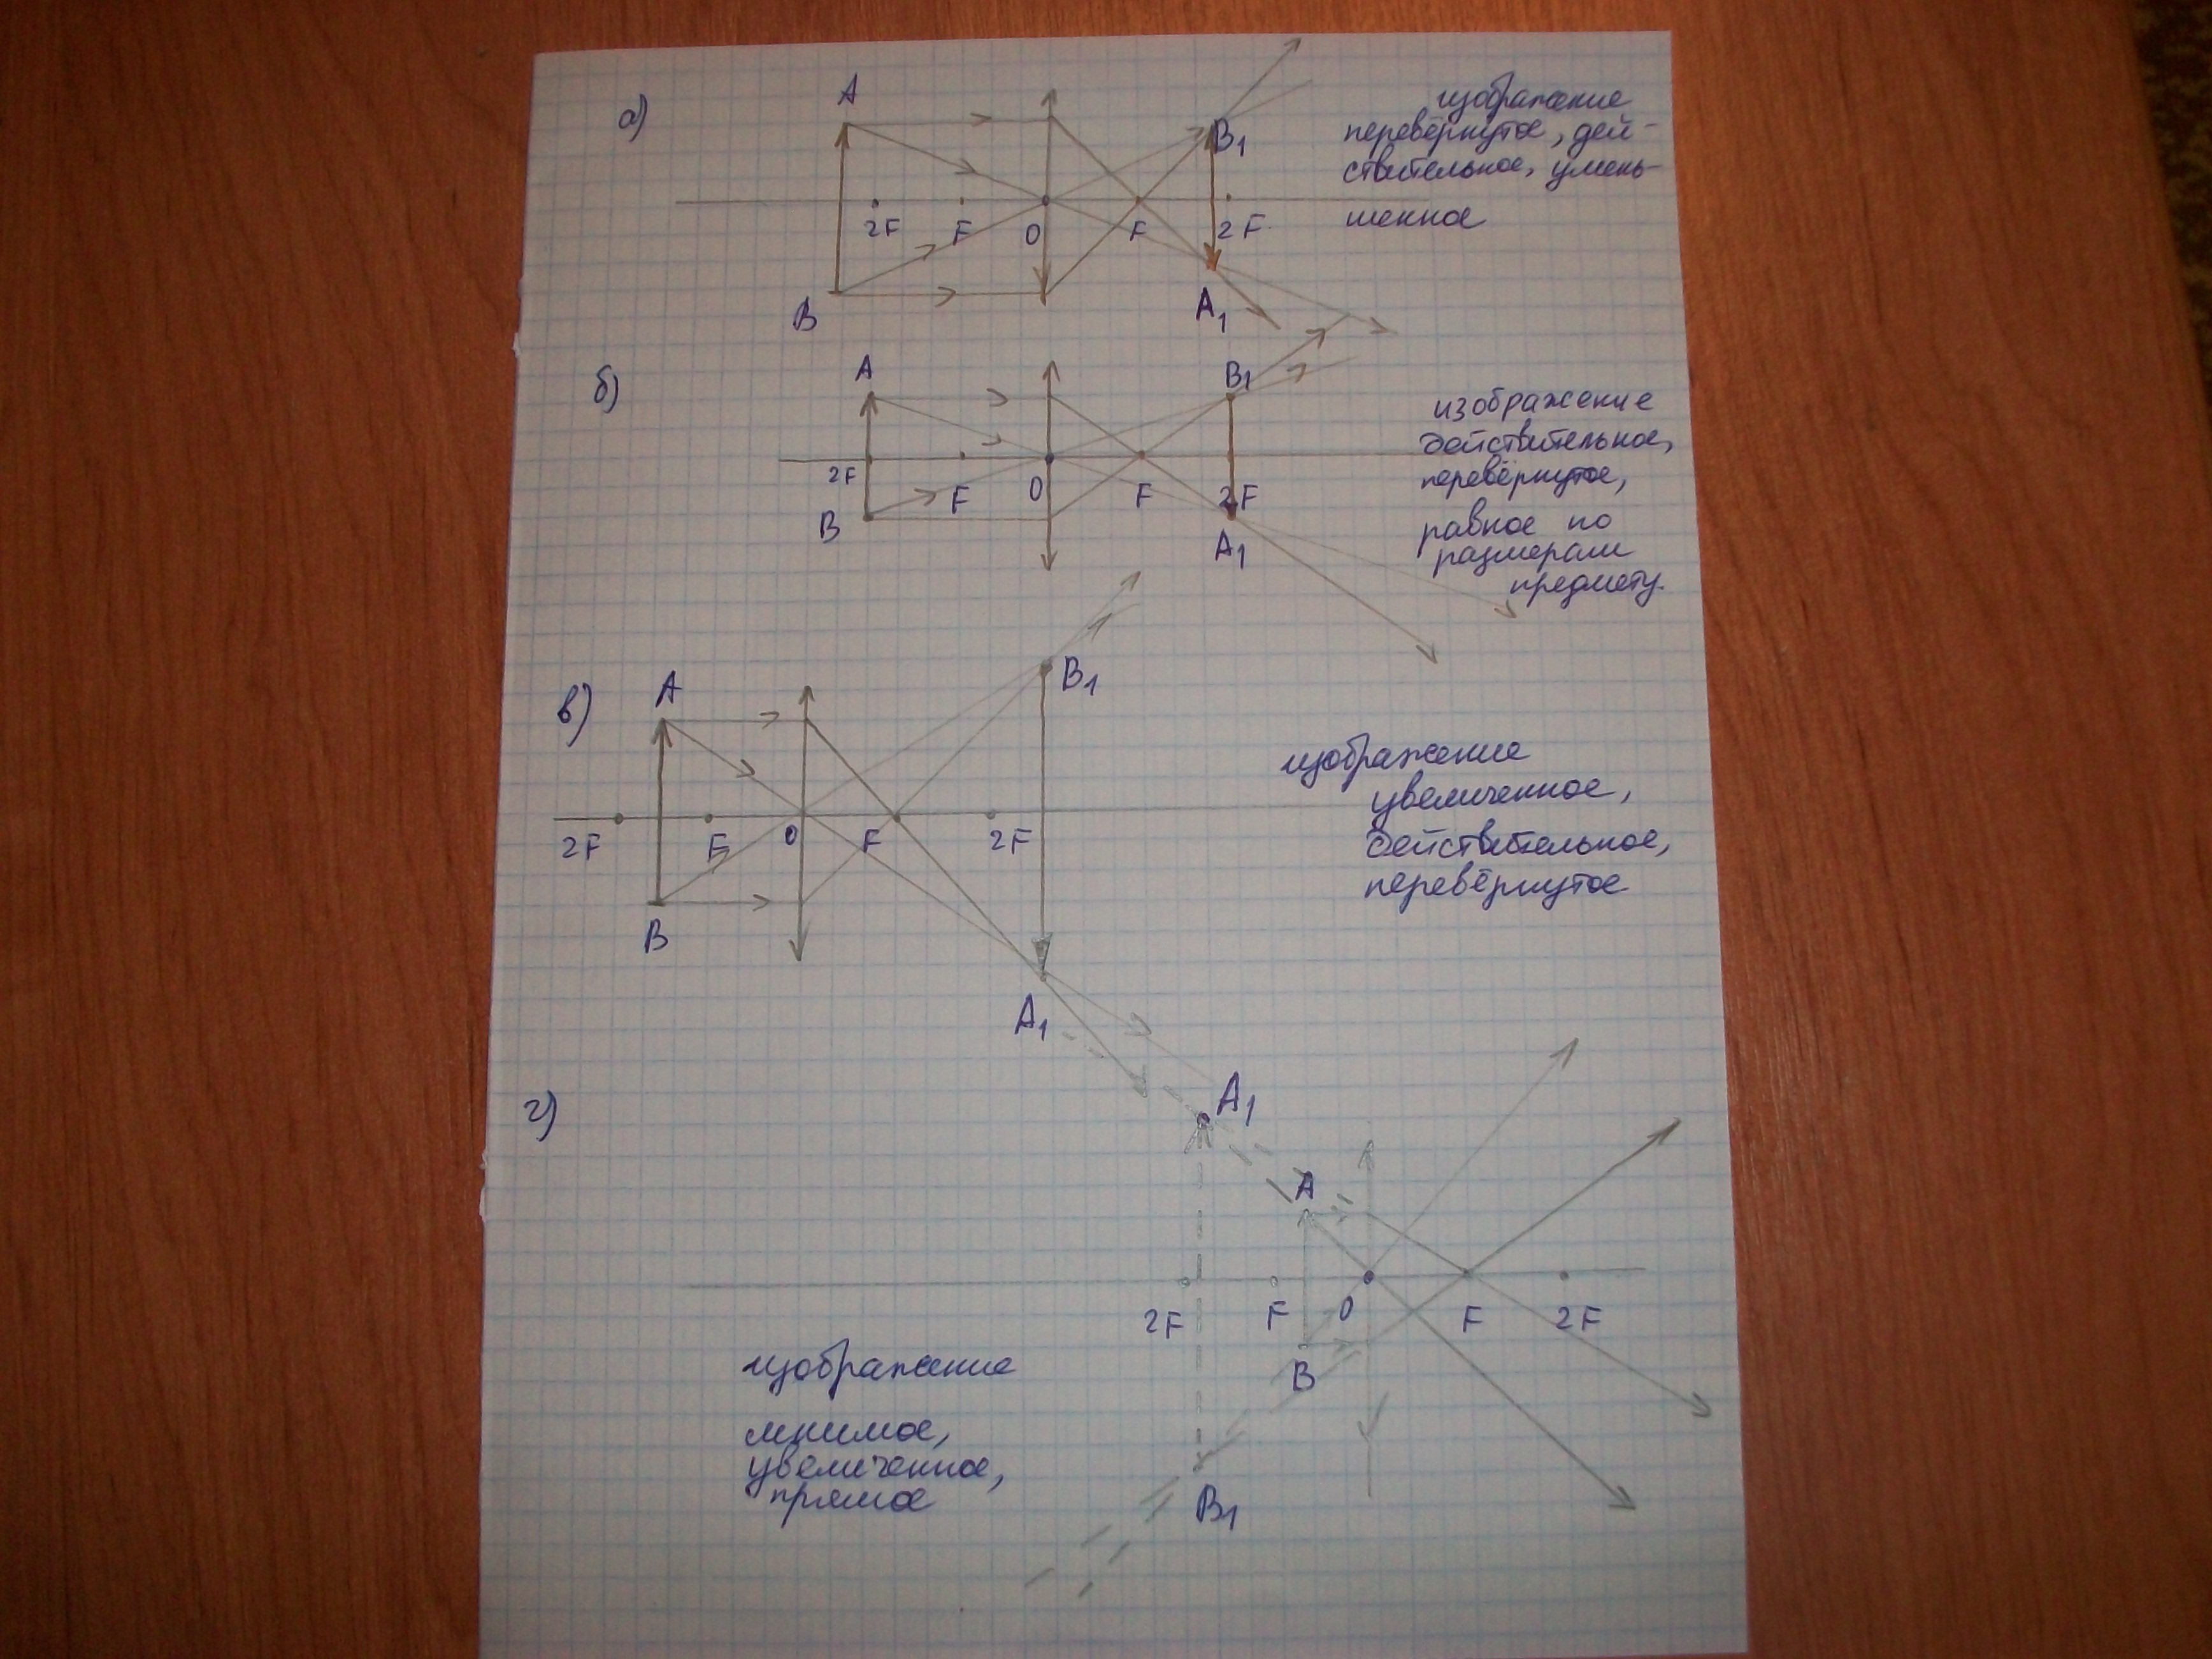 а)
A
B₁
изображение
перевёрнутое, дей-
ствительное, умень-
шенное
2F F O F 2F
B
A₁
б)
A
B₁
изображение
действительное,
перевёрнутое,
равное по
размерам
предмету.
2F F O F 2F
B
A₁
в)
A
B₁
изображение
увеличенное,
действительное,
перевёрнутое
2F F O F 2F
B
A₁
г)
A₁
A
2F F O F 2F
B
B₁
изображение
мнимое,
увеличенное,
прямое